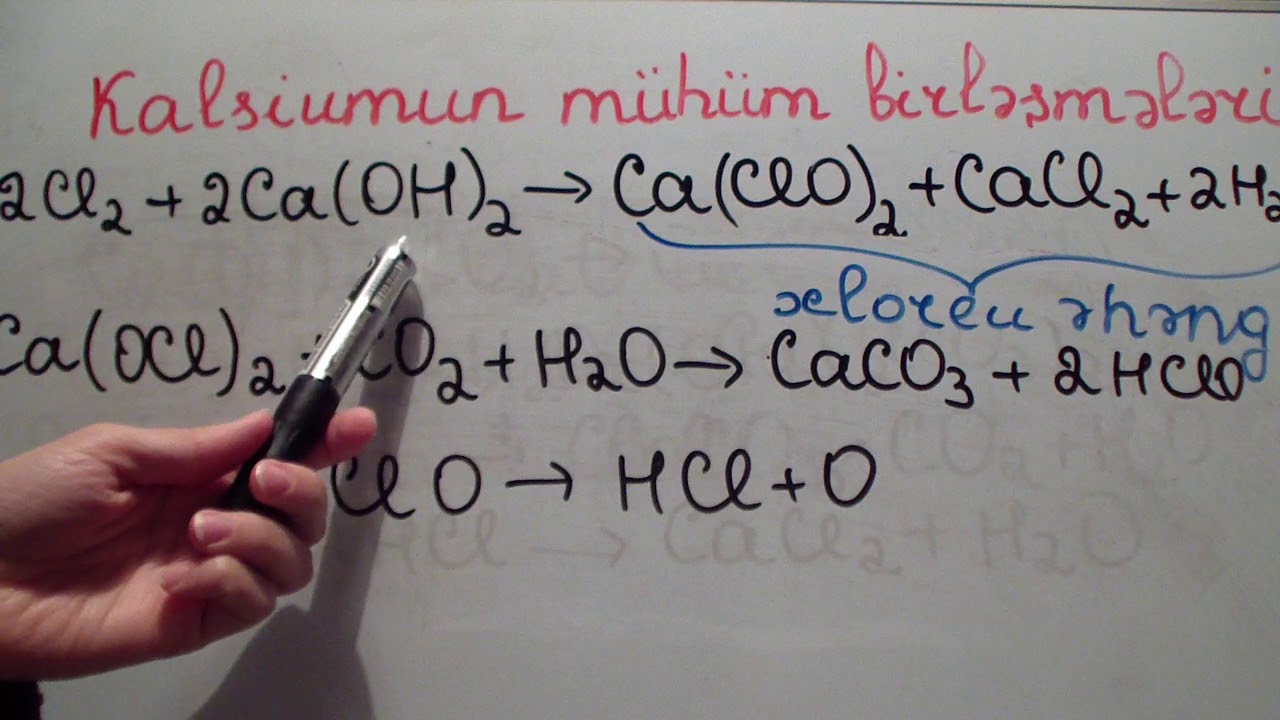 Kalsiumun mühüm birləşmələri
2Cl₂ + 2Ca(OH)₂ → Ca(ClO)₂ + CaCl₂ + 2H₂
xlorlu əhəng
Ca(OCl)₂ + CO₂ + H₂O → CaCO₃ + 2HClO
ClO → HCl + O